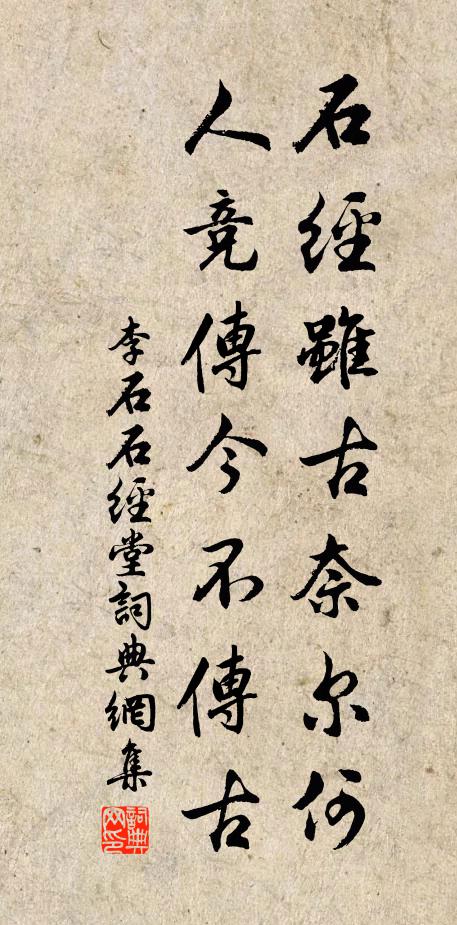 石經雖古奈尔何
人竞傳今不傳古
李石石經堂詞典網集
詞典网印